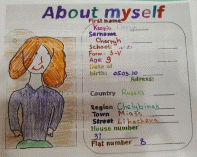 About myself
First name
Sername
School:
Form: 3-V
Age 9
Date of
birth: 05.03.10
Adress:
Country Russia
Region Chelyabinsk
Town Miass
Street Lihacheva
House number
37
Flat number 8